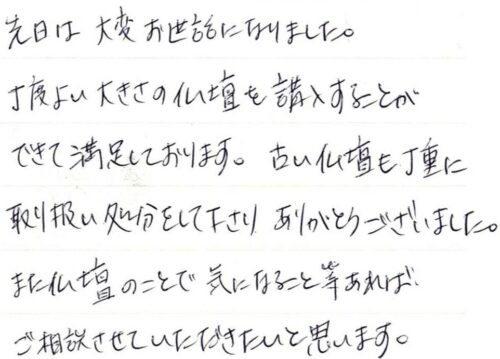 先日は大変お世話になりました。
丁度よい大きさの仏壇を講入することが
できて満足しております。古い仏壇も丁重に
取り扱い処分をして下さりありがとうございました。
また仏壇のことで気になること等あれば
ご相談させていただきたいと思います。